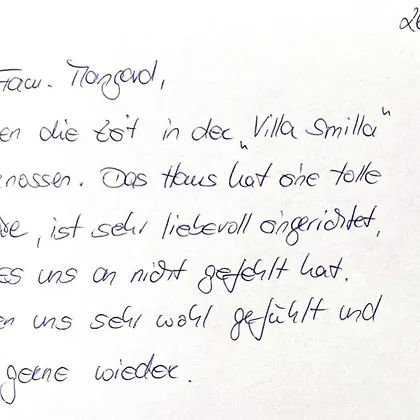 26
Fam. Mangard,
en die Zeit in der „Villa Smilla"
nossen. Das Haus hat eine tolle
re, ist sehr liebevoll eingerichtet,
es uns an nicht gefehlt hat.
en uns sehr wohl gefühlt und
gerne wieder.